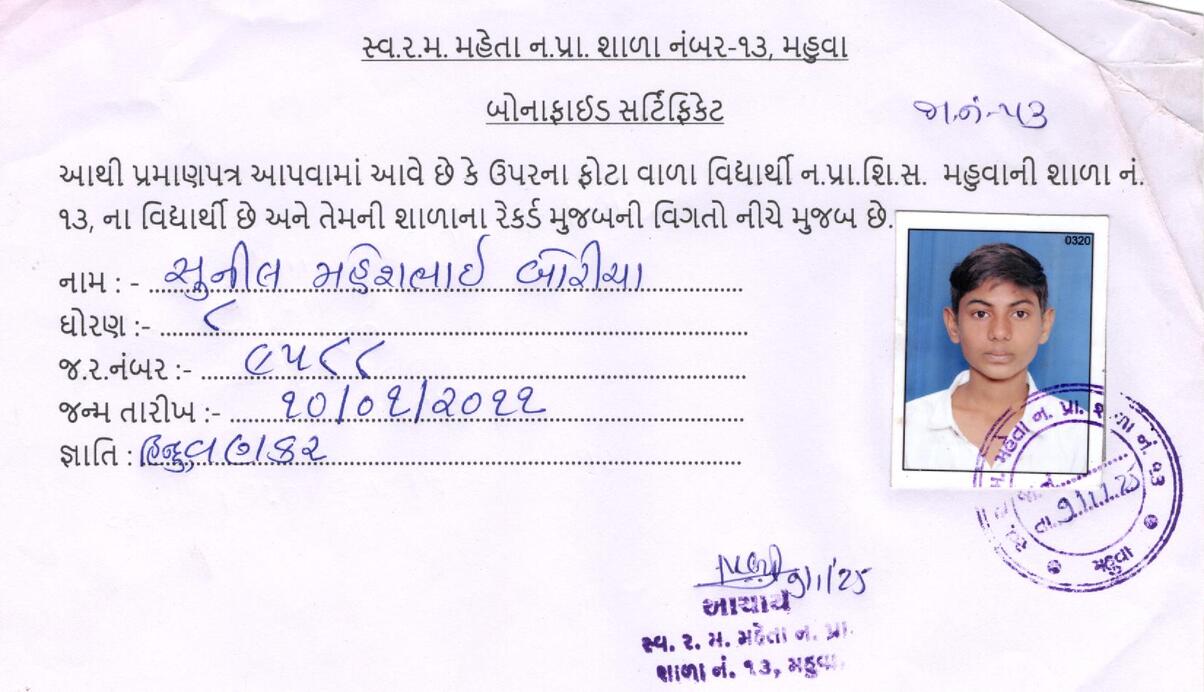 સ્વ.ર.મ. મહેતા ન.પ્રા. શાળા નંબર-૧૩, મહુવા
બોનાફાઈડ સર્ટિફિકેટ
જા.નં-૫૩
આથી પ્રમાણપત્ર આપવામાં આવે છે કે ઉપરના ફોટા વાળા વિદ્યાર્થી ન.પ્રા.શિ.સ. મહુવાની શાળા નં.
૧૩, ના વિદ્યાર્થી છે અને તેમની શાળાના રેકર્ડ મુજબની વિગતો નીચે મુજબ છે.
0320
નામ : - સુનીલ મહેશભાઈ બારીયા
ધોરણ :- ૮
જ.ર.નંબર :- ૯૫૮૮
જન્મ તારીખ :- ૧૦/૦૧/૨૦૧૧
જ્ઞાતિ : હિન્દુ વણકર
મહેતા ન. પ્રા. શાળા નં. ૧૩
તા. 9.1.25
મહુવા
9/1/25
આચાર્ય
સ્વ. ર. મ. મહેતા ન. પ્રા.
શાળા નં. ૧૩, મહુવા.